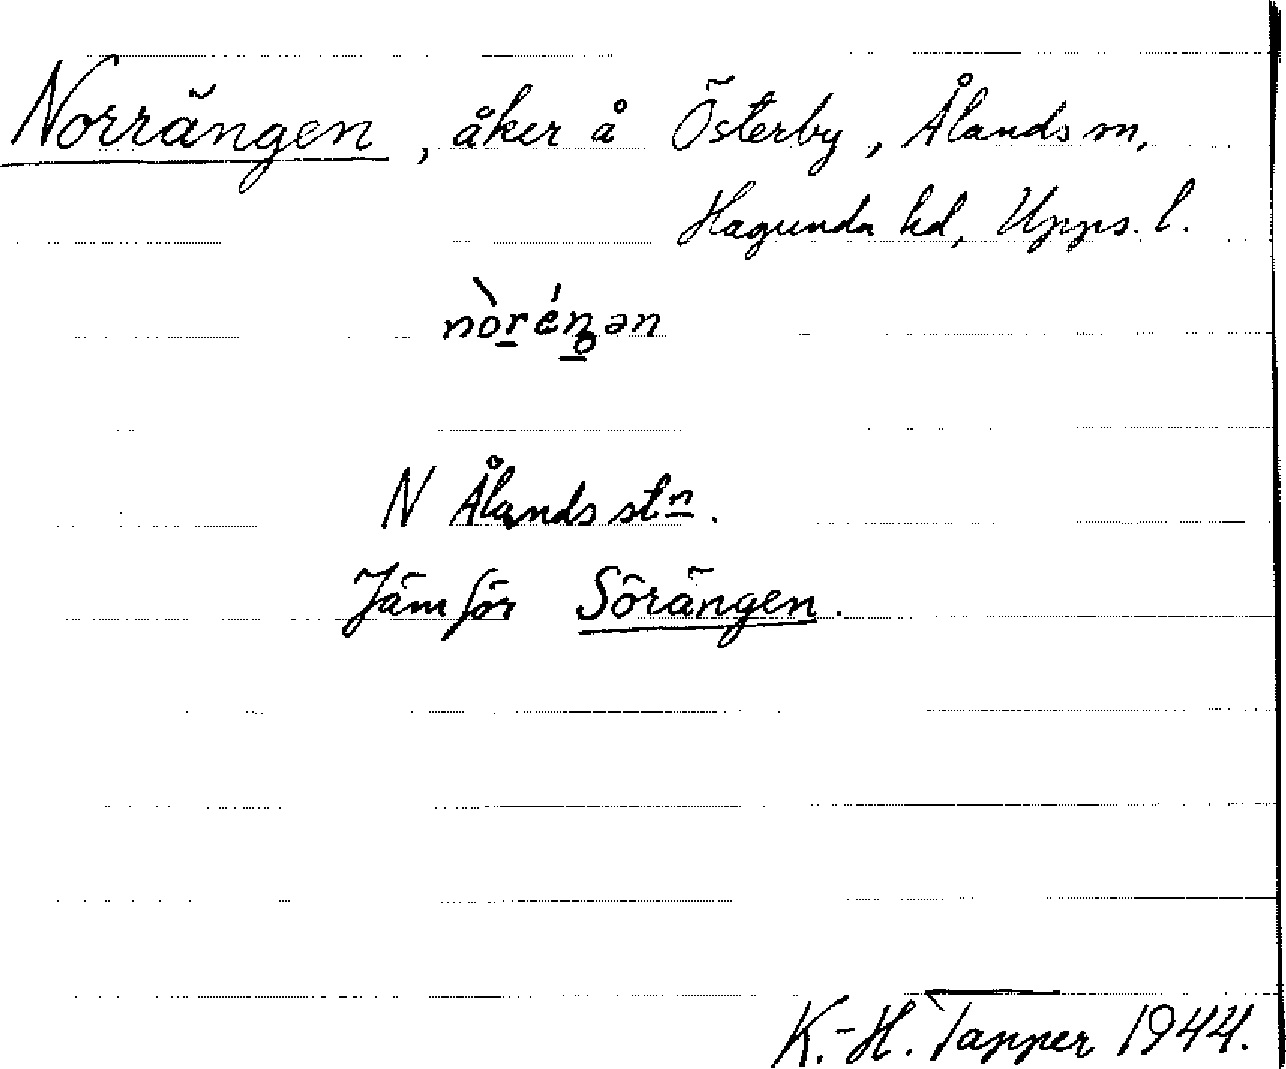 Norrängen, åker å Österby, Ålands sn,
Hagunda hd, Upps. l.
nòréŋən
N Ålands stn.
Jämför Sörängen.
K.-H. Tapper 1944.